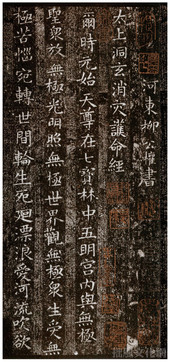 河東柳公權書
太上洞玄消灾護命經
爾時元始天尊在七寶林中五明宫内與無極
聖衆放無極光明照無極世界觀無極衆生受無
極苦惱宛轉世間輪生死廻漂浪愛河流吹欲